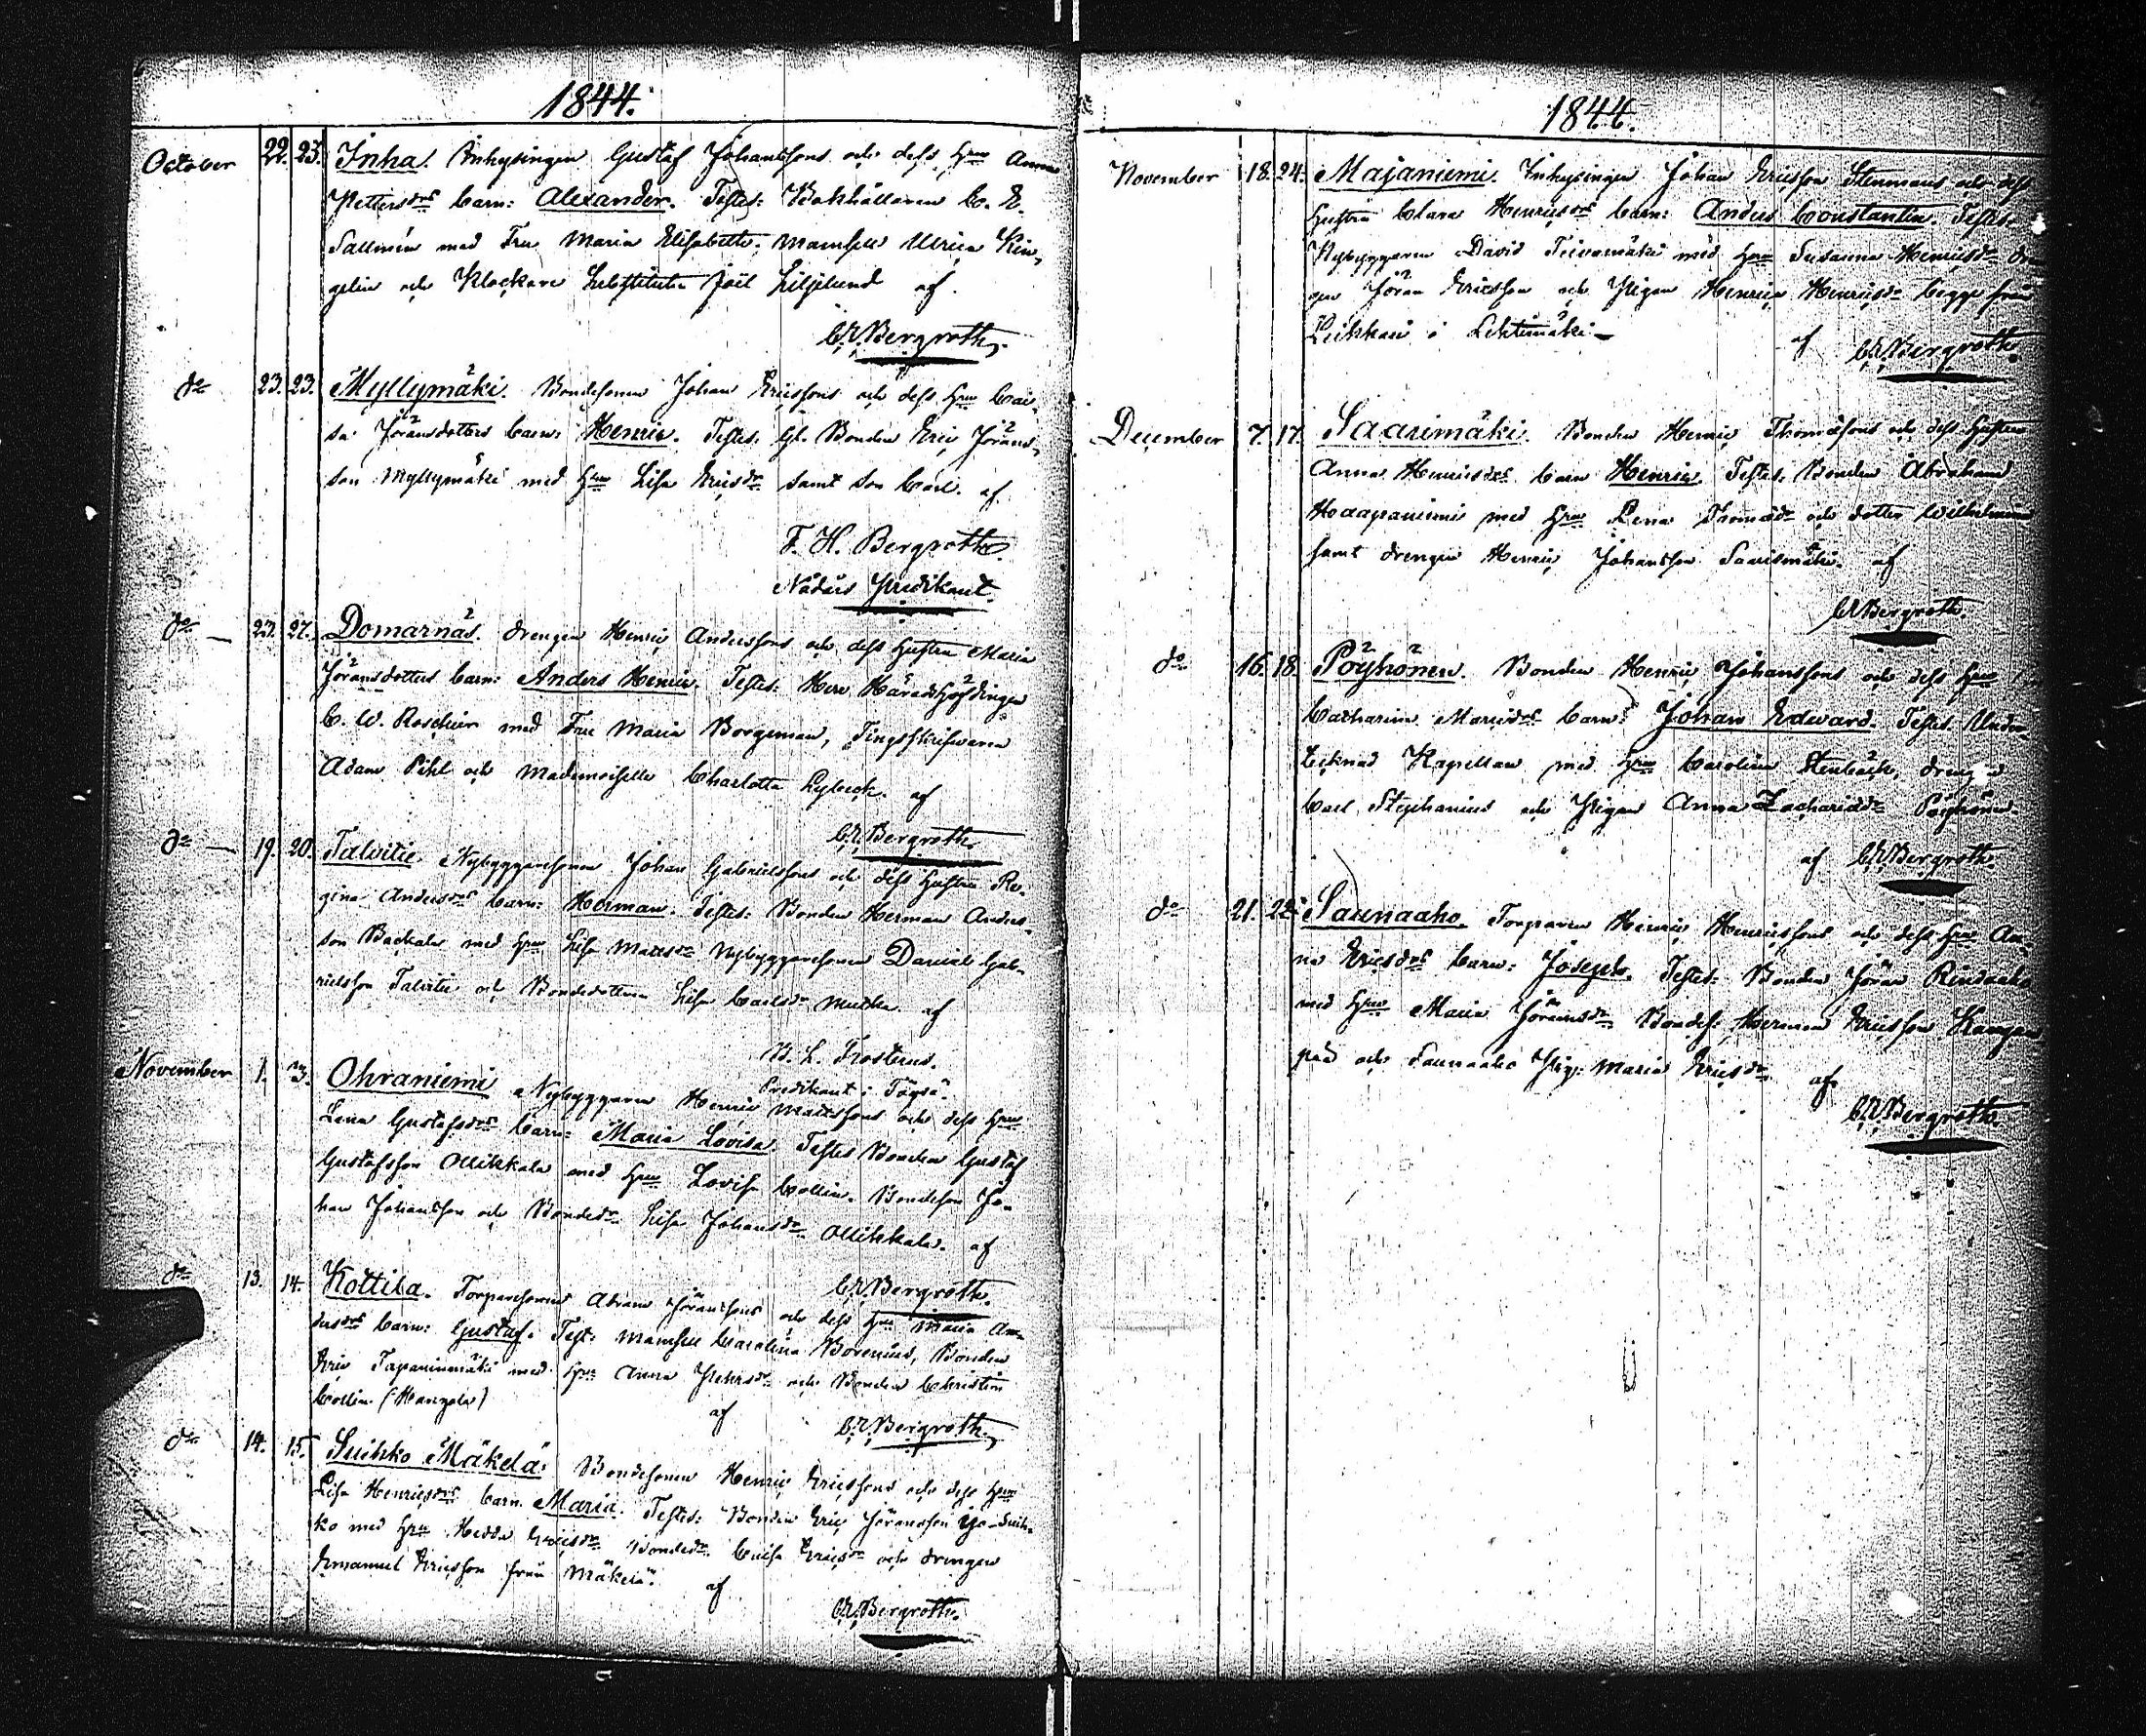 1844.
October 22. 23. Inha. Inhysingen Gustaf Johanssons och dess Hru Anna
Pettersdrs barn: Alexander. Testes: Bokhållaren C. E.
Sallmén med Fru Maria Elisabeth. Mamsell Ulrica Kin-
gelin och Klockare Substituten Joël Liljelund af
C. A. Bergroth.
do 23. 23. Myllymäki. Bondesonen Johan Ericssons och dess Hru Cai-
sa Jöransdotters barn: Henric. Testes: Gl. Bonden Eric Jörans-
son Myllymäki med Hru Lisa Ericsdr samt son Carl. af
F. H. Bergroth
Nådårs Predikant.
do 27. Domarnäs. Drengen Henric Anderssons och dess Hustru Maria
Jöransdotters barn: Anders Henric. Testes: Herr Häradshöfdingen
C. W. Roschier med Fru Maria Borgeman, Tingsskrifvaren
Adam Pihl och Mademoiselle Charlotta Lybeck. af
C. A. Bergroth.
do 19. 20. Talvitie. Nybyggaresonen Johan Gabrielssons och dess Hustru Re-
gina Andersdrs barn: Herman. Testes: Bonden Herman Anders-
son Backala med Hru Lisa Mattsdr Nybyggaresonen Daniel Gab-
rielsson Talvitie och Bondedottren Lisa Carlsdr af
B. L. Frosterus.
Predikant i Töysä.
November 1. 3. Ohraniemi Nybyggaren Henric Mattssons och dess Hru
Lena Gustafsdrs barn: Maria Lovisa. Testes Bonden Gustaf
Gustafsson Ollikkala med Hru Lovisa Collin. Bondeson Jo-
han Johansson och Bondedr Lisa Johansdr Ollikkala. af
C. A. Bergroth.
do 13. 14. Kottila. Torparesonen Abram Jöranssons och dess Hru Maria An-
dersdrs barn: Gustaf. Test: Mamsell Carolina Borenius, Bonden
Eric Tapaninmäki med Hru Anna Pettersdr och Bonden Christian
Collin (Hangola) af
C. A. Bergroth.
do 14. 15. Suihko Mäkelä. Bondesonen Henric Ericssons och dess Hru
Lisa Henricsdrs barn. Maria. Testes: Bonden Eric Jöransson Yo-Suih-
ko med Hru Hedda Ericsdr Bondedr. Caisa Ericsdr och drengen
Emanuel Ericsson från Mäkelä. af
C. A. Bergroth.
1844.
November 18. 24. Majaniemi. Inhysingen Johan Ericsson Stenmans och dess
Hustru Clara Henricsdrs barn: Anders Constantin. Testes:
Nybyggaren David Teivamäki med Hru Susanna Henricsdr Dren-
gen Jöran Ericsson och Pigan Henrica Henricsdr begge från
Leikkari i Lehtimäki - af C. A. Bergroth.
December 7. 17. Saarimäki. Bonden Henric Thomassons och dess Hustru
Anna Henricsdrs barn Henric. Testes: Bonden Abraham
Haapaniemi med Hru Lena Thomasdr och dotter Wilhelmina
samt drengen Henric Johansson Saarimäki. af
C. A. Bergroth.
do 16. 18. Pöyhönen. Bonden Henric Johanssons och dess Hru
Catharina barn: Johan Edward. Testes Under-
tecknad Kapellan med Hru Carolina Stenbäck, drengen
Carl Stephanius och Pigan Anna Zachariasdr Pöyhönen.
af C. A. Bergroth.
do 21. 22. Saunaaho. Torparen Henric Henricssons och dess Hru An-
na Ericsdrs barn: Joseph. Testes: Bonden Jöran Rindaaho
med Hru Maria Jöransdr Bondes: Herman Ericsson Kangas-
pää och Saunaaho Pig: Maria Ericsdr af
C. A. Bergroth.